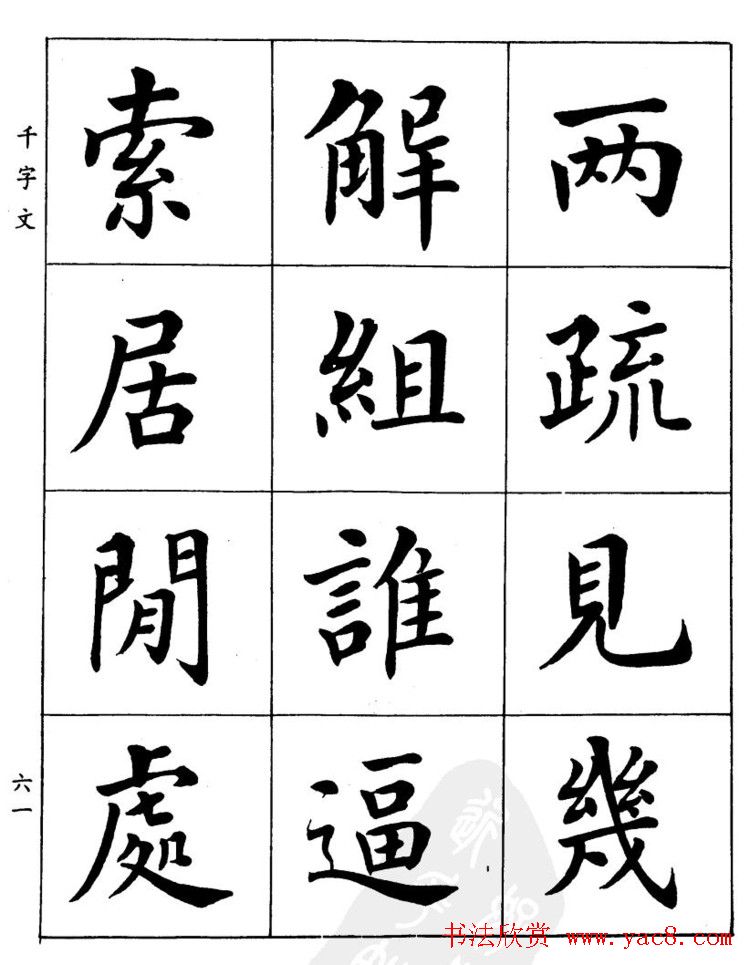 两疏見幾
解組誰逼
索居閒處
千字文
六一
书法欣赏 www.yac8.com